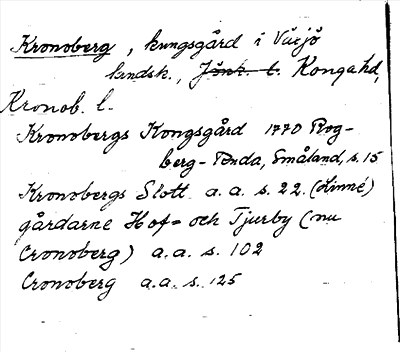 Kronoberg, kungsgård i Växjö
landsk., Jönk. l. Konga hd,
Kronob. l.
Kronobergs Kongsgård 1770 Rog-
berg-Ruda, Småland, s. 15
Kronobergs Slott a.a. s. 22. (Linné)
gårdarne Hof- och Tjurby (nu
Cronoberg) a.a. s. 102
Cronoberg a.a. s. 125